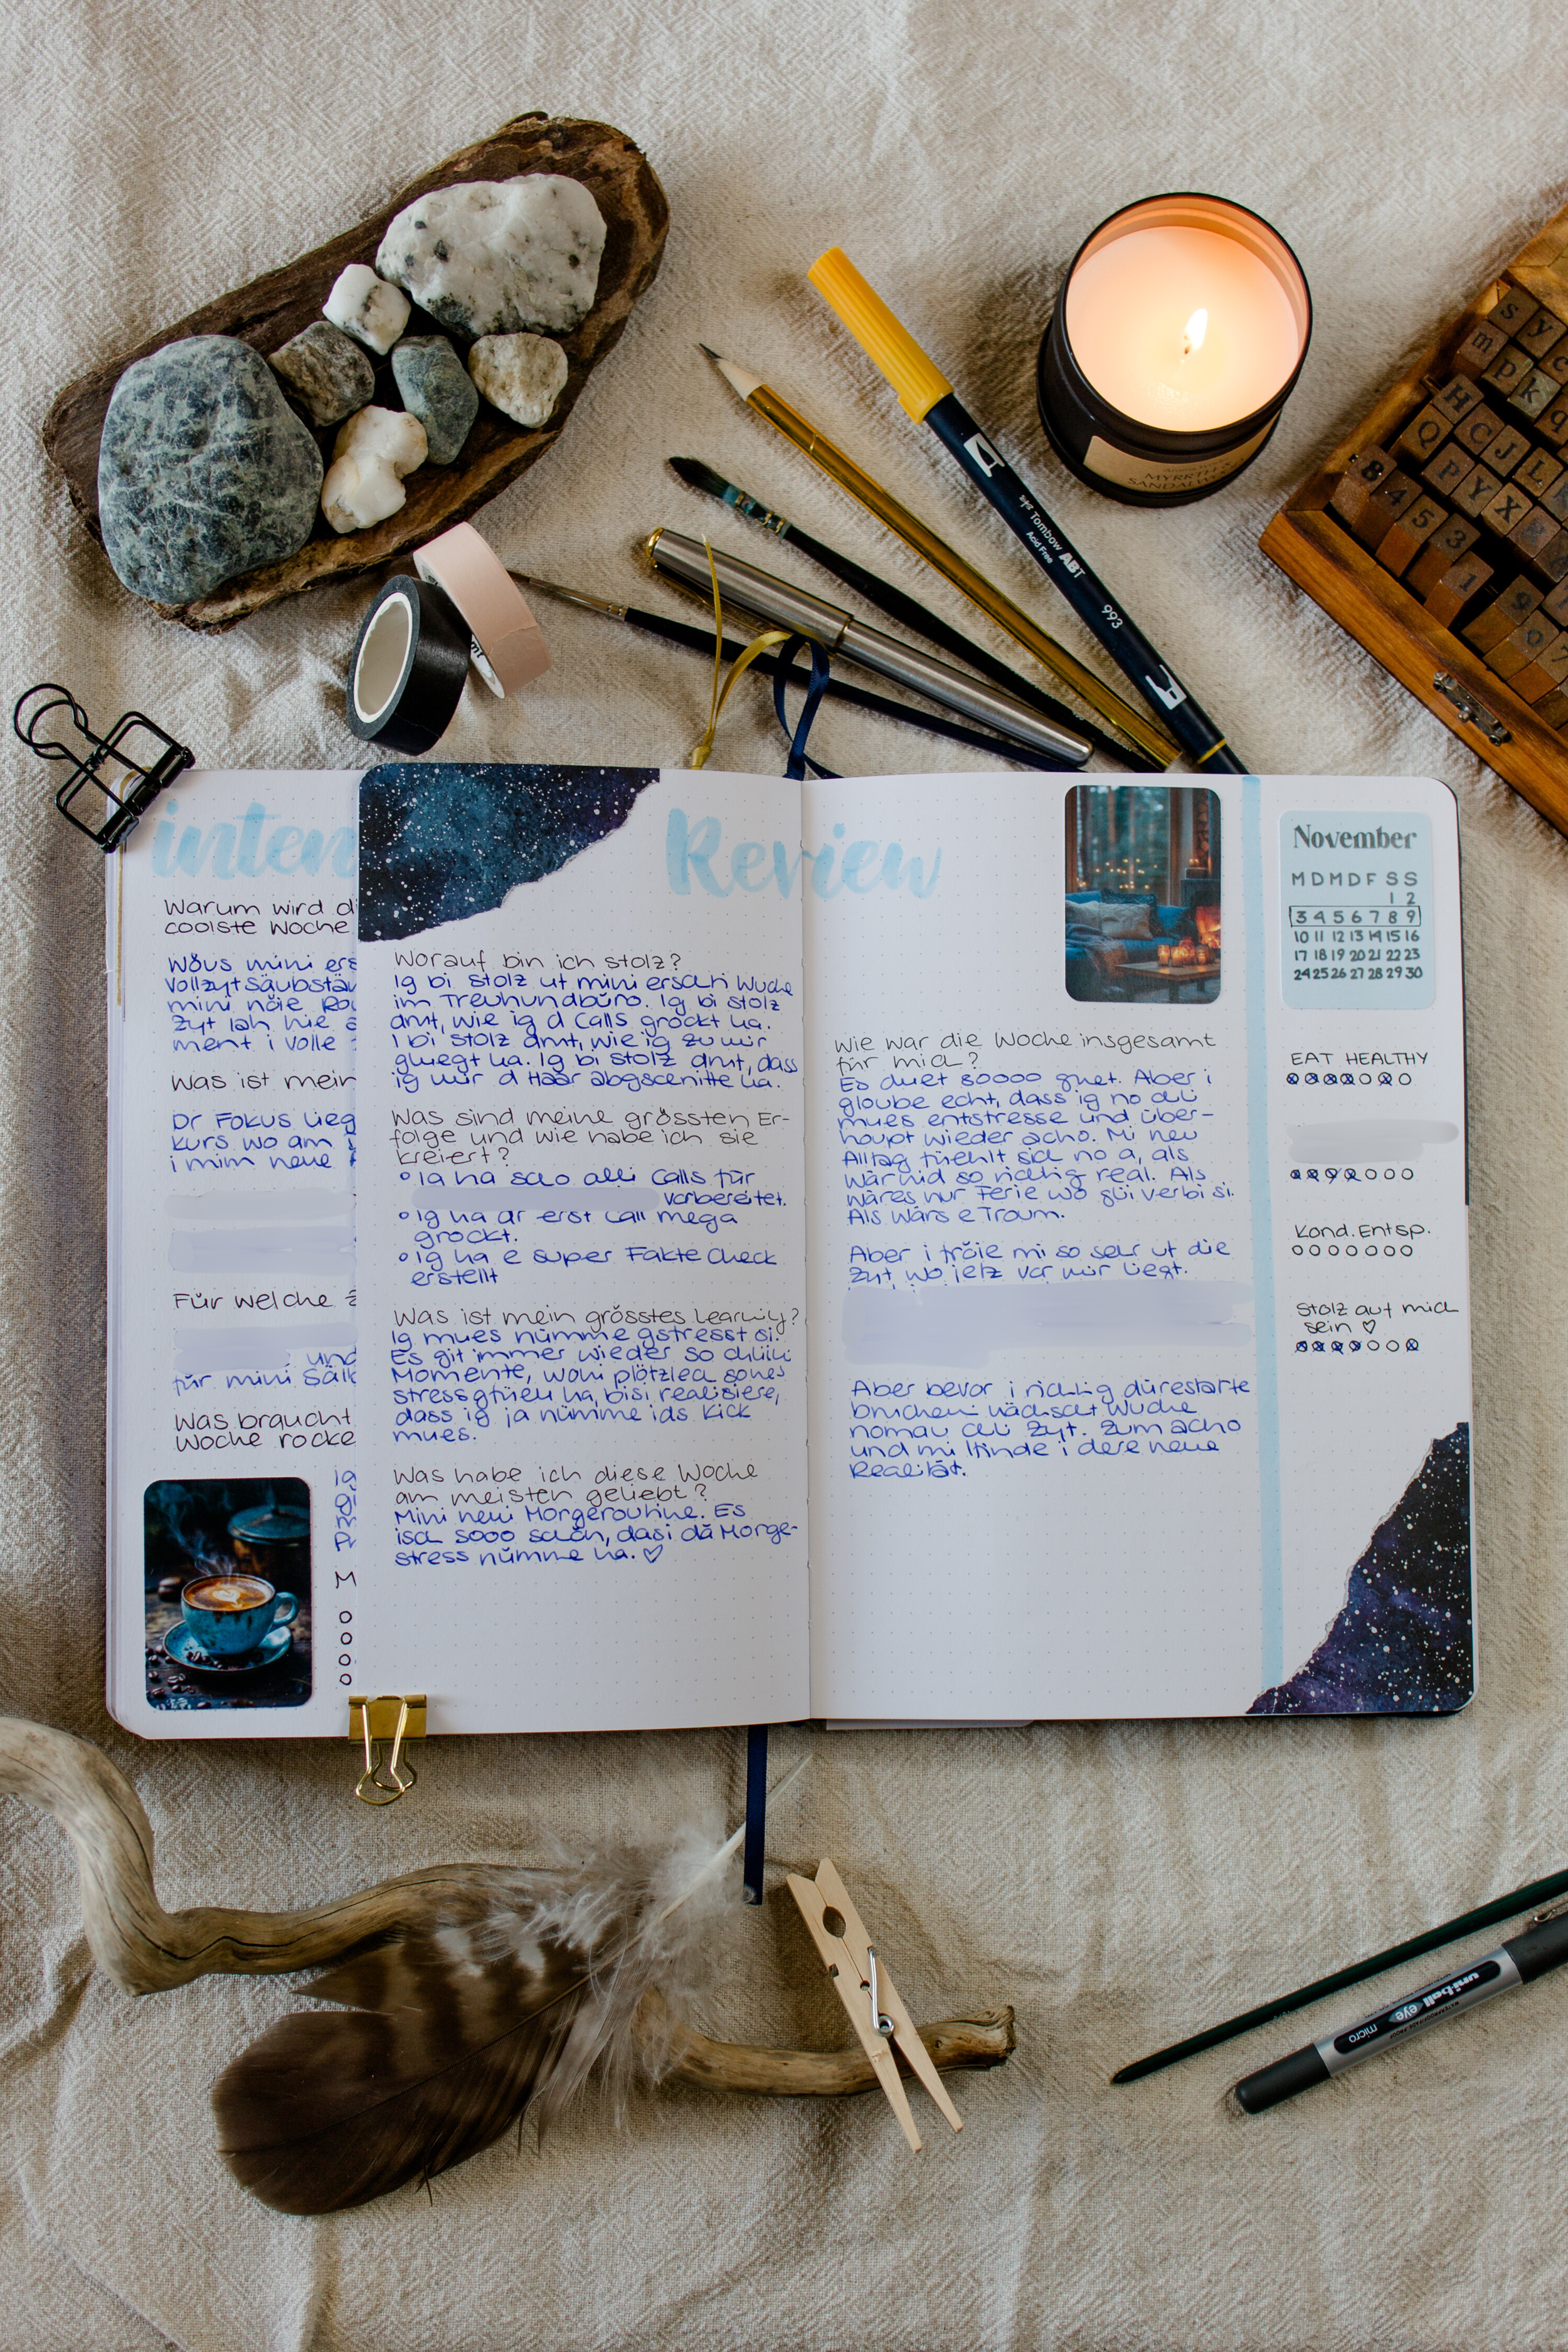 MYRRH &
Tombow ABT
Acid Free
993
s y
m p k q
H C J L
Q P Y X
8 4 5 3 1 9 0 7
inten
Warum wird d
coolste Woche
mini ers
Vollzyt Säubstän
mini nöie Rou
Zyt
ment i volle
Was ist mein
Dr Fokus lieg
kurs wo am
i mim neue
Für welche
und
für mini Sälb
Was braucht
Woche rocke
Ig
M
Review
Worauf bin ich stolz?
Ig bi stolz uf mini erschti Wuche
im Treuhandbüro. Ig bi stolz
druf, wie ig d Calls grockt ha.
I bi stolz druf, wie ig zu mir
gluegt ha. Ig bi stolz druf, dass
ig mir d Haar abgschnitte ha.
Was sind meine grössten Er-
folge und wie habe ich sie
kreiert?
Ig ha scho alli Calls für
vorbereitet.
Ig ha dr erst Call mega
grockt.
Ig ha e super Fakte Check
erstellt
Was ist mein grösstes Learning?
Ig mues nümme gstresst si.
Es git immer wieder so chlini
Momente, woni plötzlech sones
stressgfüehl ha, bisi realisiere,
dass ig ja nümme ids Kick
mues.
Was habe ich diese Woche
am meisten geliebt?
Mini neui Morgeroutine. Es
isch sooo schön, dasi dä Morge-
stress nümme ha. ♡
Wie war die Woche insgesamt
für mich?
Es duet soooo guet. Aber i
gloube echt, dass ig no chli
mues entstresse und über-
houpt wieder acho. Mi neu
Alltag füehlt sich no a, als
wär nid so richtig real. Als
wäres nur Ferie wo gli verbi si.
Als wärs e Troum.
Aber i fröie mi so sehr uf die
Zyt, wo jetz vor mir liegt.
Aber bevor i richtig dürestarte
bruchen i nächscht Wuche
nomau chli Zyt. Zum acho
und mi lfinde i dere neue
Realität.
November
M D M D F S S
1 2
3 4 5 6 7 8 9
10 11 12 13 14 15 16
17 18 19 20 21 22 23
24 25 26 27 28 29 30
EAT HEALTHY
Kond. Entsp.
Stolz auf mich
sein ♡
uni-ball eye
micro